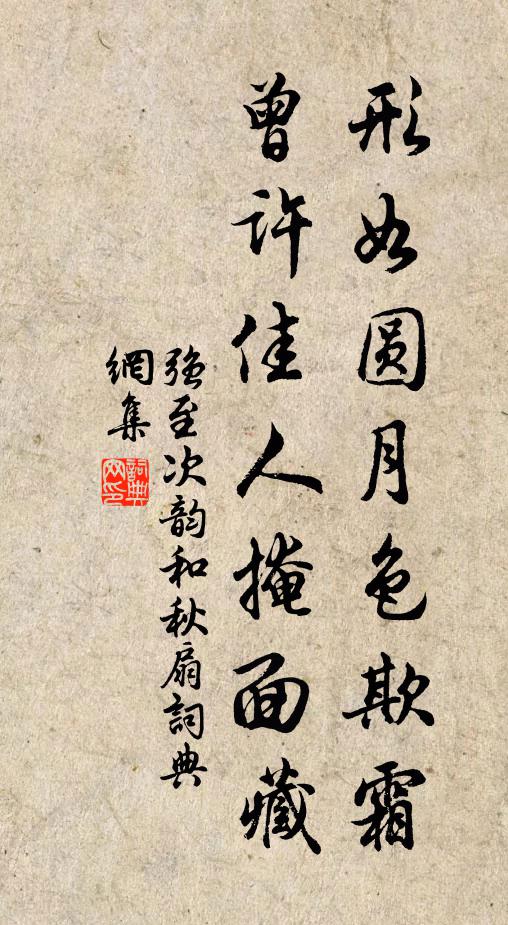 形如圆月色欺霜
曾许佳人掩面藏
强至次韵和秋扇詞典
網集
詞典
网印